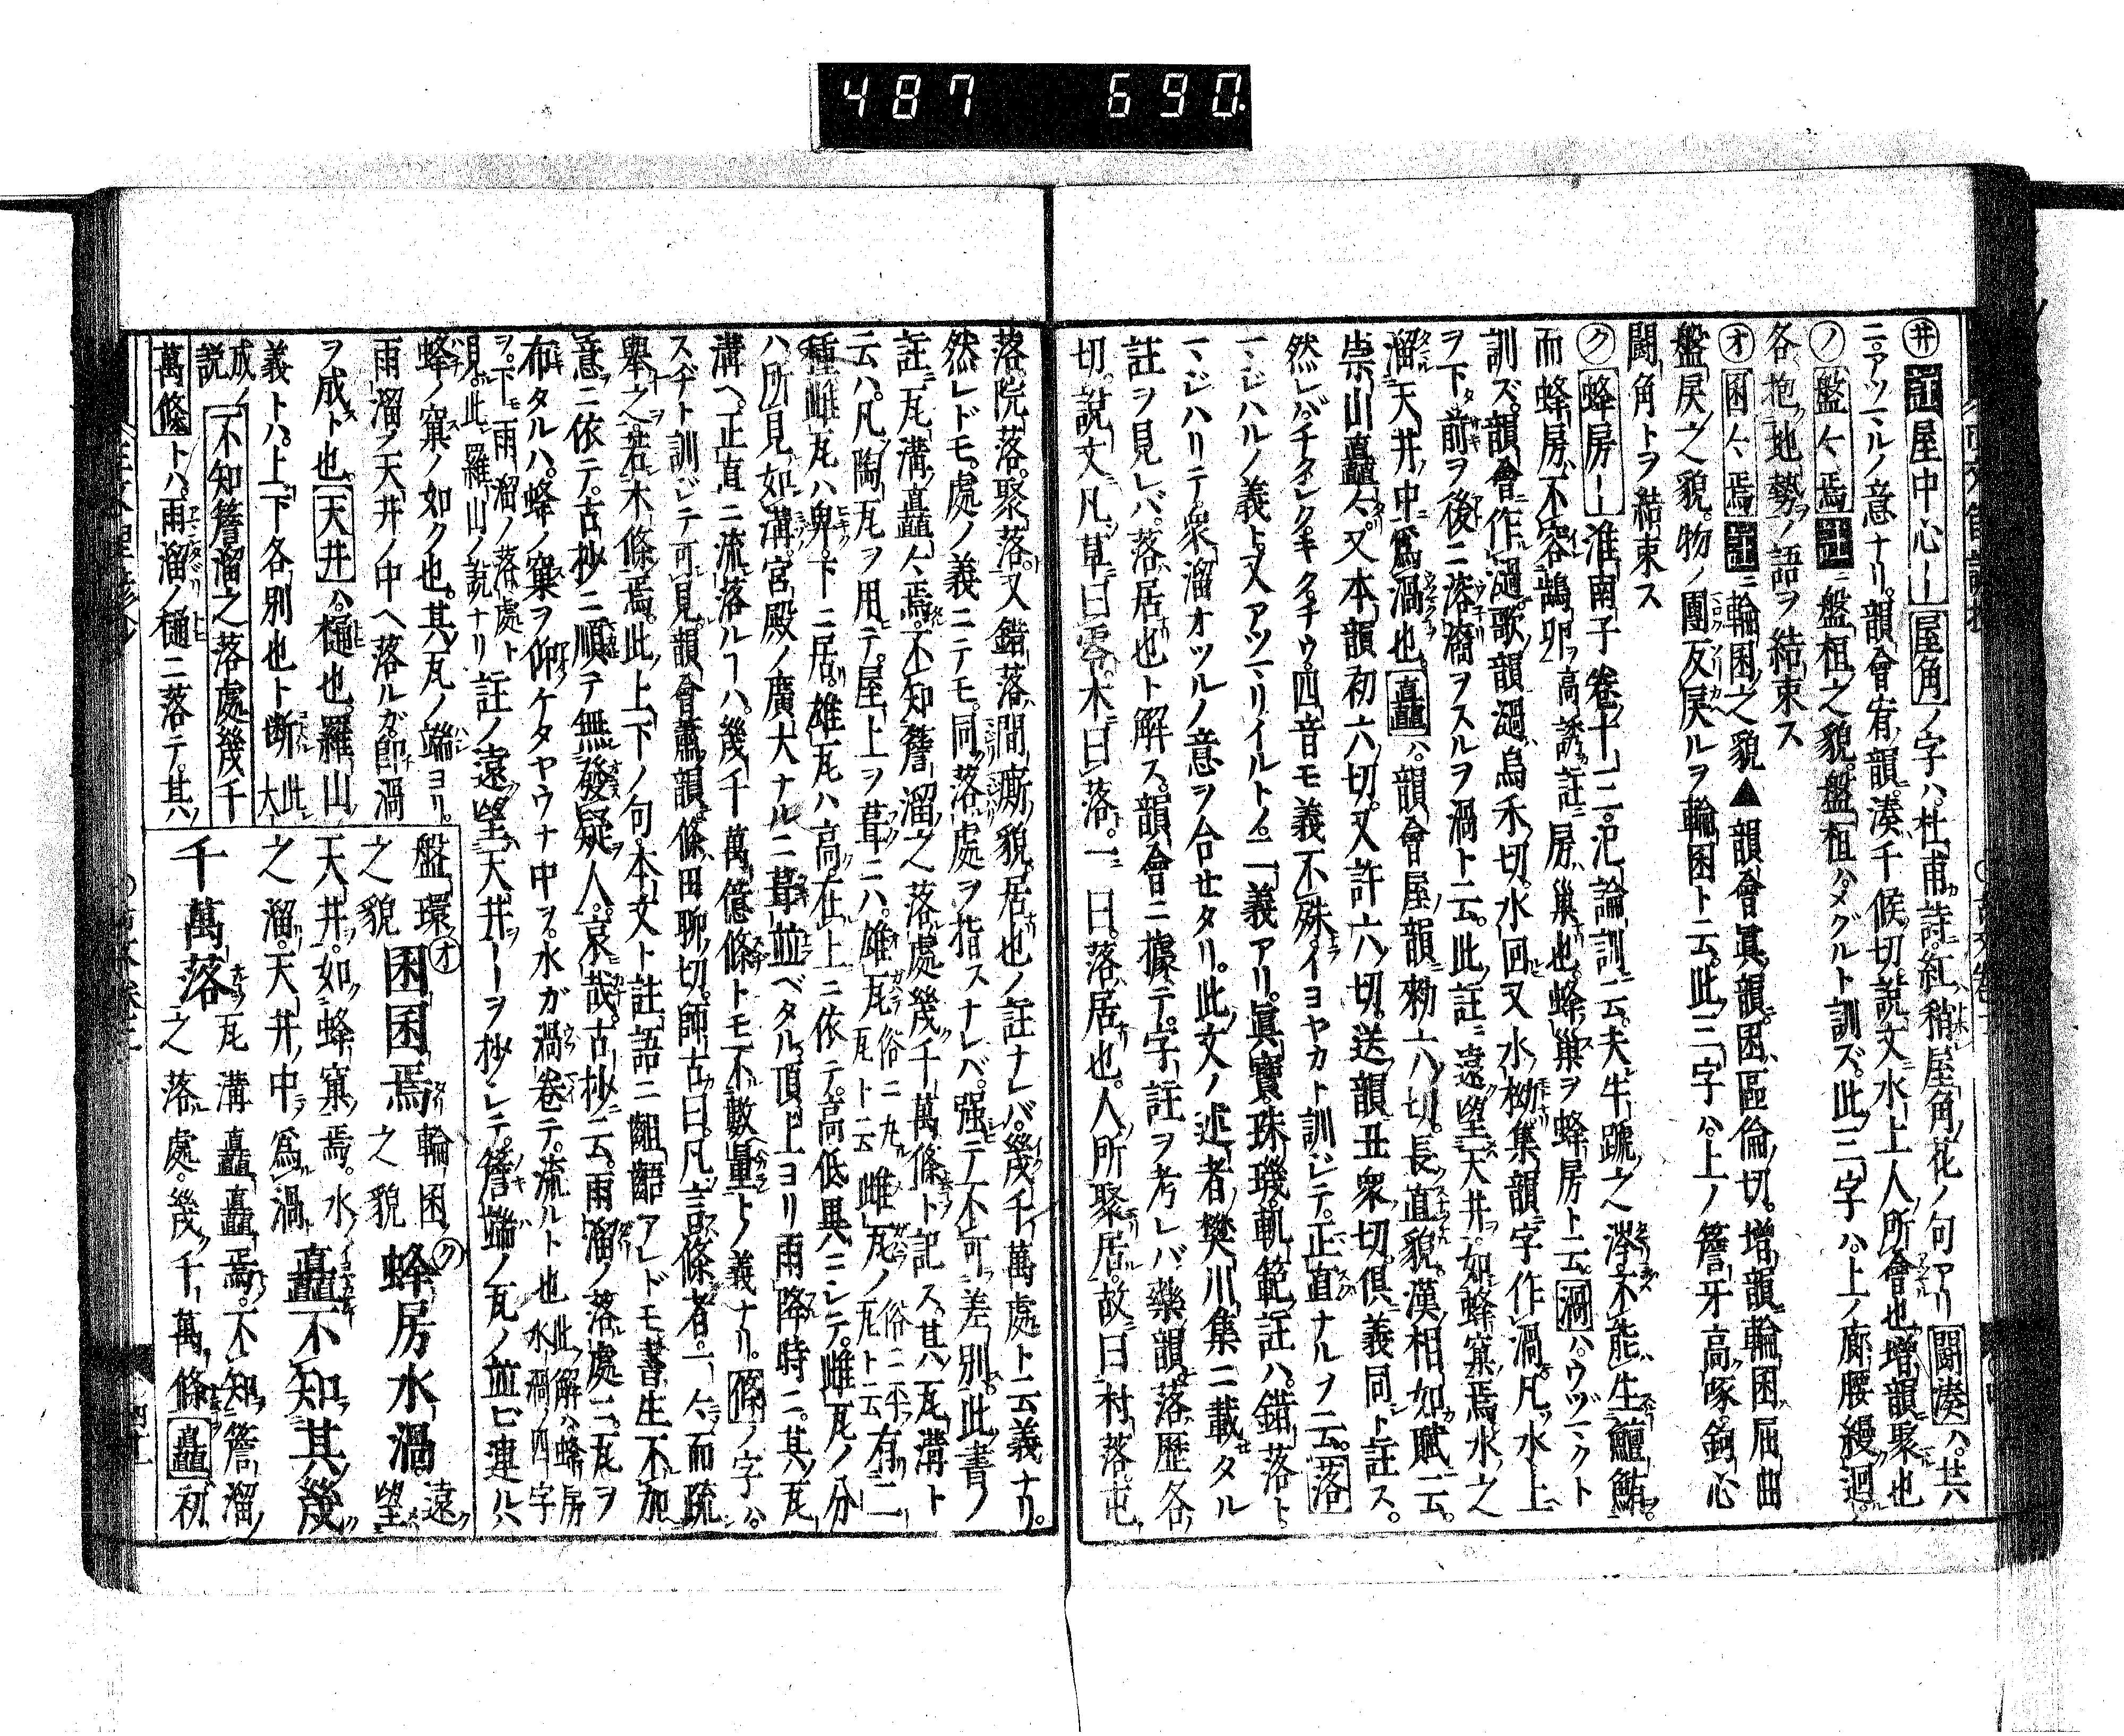 487 690
㋼註屋中心ー屋角ノ字ハ杜甫詩紅稍屋角花ノ句アリ鬪湊ハ共
ニアツマルノ意ナリ韻會宥韻湊千候切説文水上人所會也増韻聚也
㋨盤々焉註ニ盤桓之貌盤桓ハメグルト訓ズ此三字ハ上ノ廊腰縵廻
各抱地勢ノ語ヲ結束ス
㋔囷々焉註ニ輪囷之貌▲韻會眞韻囷區倫切増韻輪囷屈曲
盤戻之貌物ノ團反戻ルヲ輪囷ト云此三字ハ上ノ簷牙高啄鉤心
鬪角トヲ結束ス
㋗蜂房ー淮南子卷十三氾論訓云夫牛蹏之涔不能生鱣鮪
而蜂房不容鵠卵高誘註房巢也蜂巢ヲ蜂房ト云渦ハウヅマクト
訓ズ韻會作渦歌韻渦烏禾切水回又水坳集韻字作渦凡水上
ヲ下前ヲ後ニ濟瀰ヲスルヲ渦ト云此註遠望天井如蜂窠焉水之
溜天井中爲渦也矗ハ韻會屋韻勅六切長直貌漢相如賦云
崇山矗々又本韻初六切又許六切送韻丑衆切倶義同ト註ス
然レバチクレクキクチウ四音モ義不殊イヨヤカト訓ジテ正直ナルヲ云落
マジハルノ義ト又アツマリイルトノ二義アリ眞寶珠璣軌範註ハ錯落ト
マジハリテ衆溜オツルノ意ヲ合セタリ此文ノ述者樊川集ニ載タル
註ヲ見レバ落居也ト解ス韻會ニ據テ字註ヲ考レバ藥韻落歷各
切説文凡草曰零木曰落一曰落居也人所聚居故曰村落屯
落院落聚落又錯落間廝貌居也ノ註ナレバ幾千萬處ト云義ナリ
然レドモ處ノ義ニテモ同落處ヲ指スナレバ强テ不可差別此書ノ
註瓦溝矗々焉不知簷溜之落處幾千萬條ト記ス其瓦溝ト
云ハ凡陶瓦ヲ用テ屋上ヲ葺ニハ雄瓦俗ニ丸瓦ト云雌瓦ノ俗ニ平瓦ト云有二
種雌瓦ハ卑下ニ居雄瓦ハ高在上ニ依テ高低異ニシテ雌瓦ノ分
ハ所見如溝宮殿ノ廣大ナルニ葺並ベタル頂上ヨリ雨降時ニ其瓦
溝ヘ正直ニ流落ルヿハ幾千萬億條トモ不數量トノ義ナリ條ノ字ハ
スヂト訓ジテ可見韻會蕭韻條田聊切師古曰凡言條者一々而疏
擧之若木條焉此上下ノ句本文ト註語ニ齟齬アレドモ書生不加
意ニ依テ古抄ニ順テ無發疑人哀哉古抄云雨溜ノ落處ニ瓦ヲ
布タルハ蜂ノ窠ヲ仰ケタヤウナ中ヲ水ガ渦卷テ流ルト也此解ハ蜂房水渦ノ四字
ヲ下モ雨溜ノ落處ト見此羅山ノ説ナリ註ノ遠望天井ーーヲ抄レテ簷端ノ瓦ノ並ビ連ハ
蜂ノ窠ノ如ク也其瓦ノ端ヨリ
雨溜ノ天井ノ中ヘ落ルガ卽渦
ヲ成ト也天井ハ樋也羅山
義トハ上下各別也ト斷此大
成ノ説不知簷溜之落處幾千
萬條トハ雨溜ノ樋ニ落テ其
盤環之貌㋔囷囷焉輪囷之貌㋗蜂房水渦遠望
天井如蜂窠焉水之溜天井中爲渦矗不知其幾
千萬落瓦溝矗矗焉不知簷溜之落處幾千萬條矗初